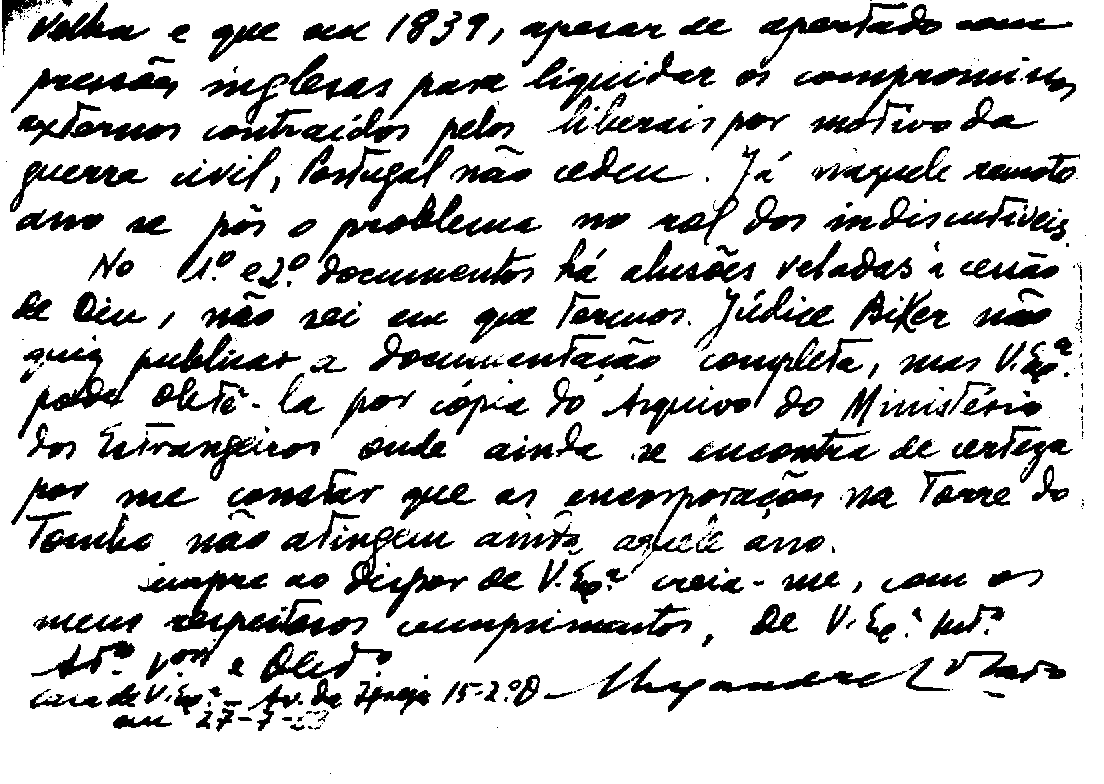 Velha e que em 1839, apesar de apertado com
pressões inglesas para liquidar os compromissos
externos contraídos pelos liberais por motivo da
guerra civil, Portugal não cedeu. Já naquele remoto
ano se pôs o problema no rol dos indiscutíveis.
No 1.º e 2.º documentos há alusões veladas à cessão
de Diu, não sei em que termos. Júdice Biker não
quiz publicar a documentação completa, mas V. Exª.
pode obtê-la por cópia do Arquivo do Ministério
dos Estrangeiros onde ainda se encontra de certeza
por me constar que as encorporações na Torre do
Tombo não atingem ainda aquele ano.
Sempre ao dispor de V. Exª. creia-me, com os
meus respeitosos cumprimentos, de V. Exª. Mt.º
At.º V.or e Obgd.º
casa de V. Exª. - Av. da Igreja 15-2.º D - Alexandre Lobato
em 27-7-